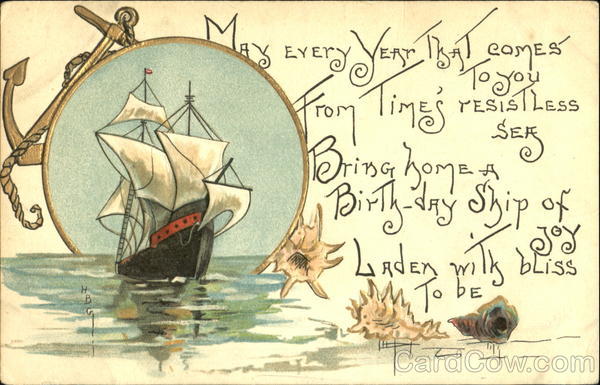 May every Year that comes
to you
From Time's resistless
sea
Bring home a
Birth-day Ship of
joy
Laden with bliss
to be
HBG
CardCow.com